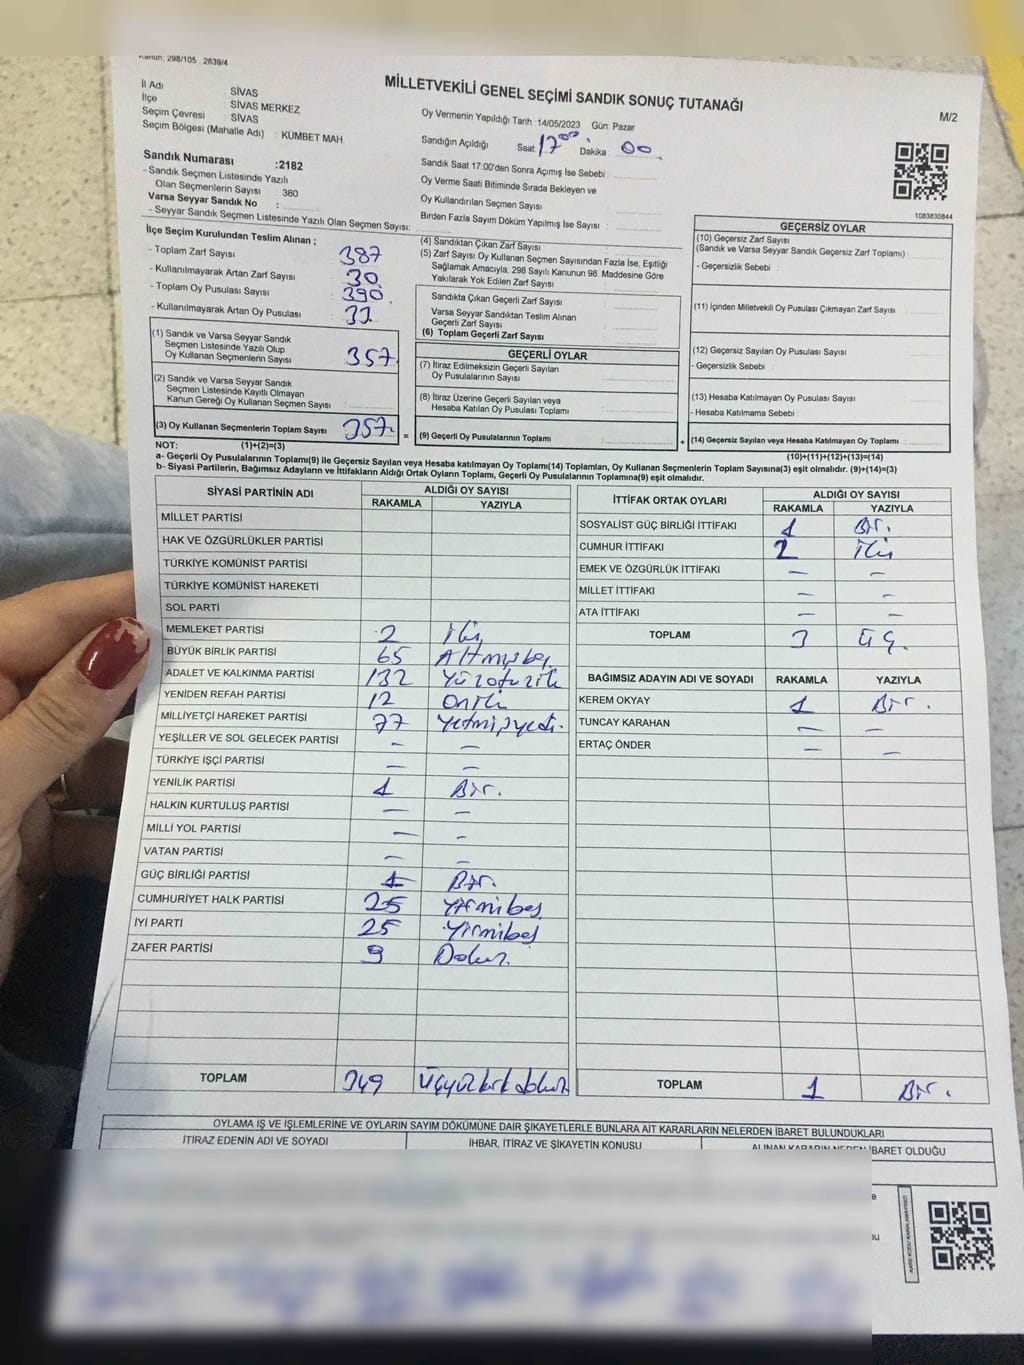 Kanun: 298/105 . 2839/4
MİLLETVEKİLİ GENEL SEÇİMİ SANDIK SONUÇ TUTANAĞI
M/2
İl Adı : SİVAS
İlçe : SİVAS MERKEZ
Seçim Çevresi : SİVAS
Seçim Bölgesi (Mahalle Adı) : KÜMBET MAH
Sandık Numarası :2182
- Sandık Seçmen Listesinde Yazılı
Olan Seçmenlerin Sayısı : 380
Varsa Seyyar Sandık No :
- Seyyar Sandık Seçmen Listesinde Yazılı Olan Seçmen Sayısı:
Oy Vermenin Yapıldığı Tarih :14/05/2023 Gün: Pazar
Sandığın Açıldığı Saat: 17 00 Dakika : 00
Sandık Saat 17:00'den Sonra Açımış İse Sebebi :
Oy Verme Saati Bitiminde Sırada Bekleyen ve
Oy Kullandırılan Seçmen Sayısı
Birden Fazla Sayım Döküm Yapılmış İse Sayısı :
1083830844
İlçe Seçim Kurulundan Teslim Alınan ;
- Toplam Zarf Sayısı : 387
- Kullanılmayarak Artan Zarf Sayısı : 30
- Toplam Oy Pusulası Sayısı : 390
- Kullanılmayarak Artan Oy Pusulası : 33
(1) Sandık ve Varsa Seyyar Sandık
Seçmen Listesinde Yazılı Olup
Oy Kullanan Seçmenlerin Sayısı : 357
(2) Sandık ve Varsa Seyyar Sandık
Seçmen Listesinde Kayıtlı Olmayan
Kanun Gereği Oy Kullanan Seçmen Sayısı :
(3) Oy Kullanan Seçmenlerin Toplam Sayısı : 357 =
(4) Sandıktan Çıkan Zarf Sayısı :
(5) Zarf Sayısı Oy Kullanan Seçmen Sayısından Fazla İse, Eşitliği
Sağlamak Amacıyla, 298 Sayılı Kanunun 98. Maddesine Göre
Yakılarak Yok Edilen Zarf Sayısı :
Sandıkta Çıkan Geçerli Zarf Sayısı :
Varsa Seyyar Sandıktan Teslim Alınan
Geçerli Zarf Sayısı :
(6) Toplam Geçerli Zarf Sayısı :
GEÇERLİ OYLAR
(7) İtiraz Edilmeksizin Geçerli Sayılan
Oy Pusulalarının Sayısı :
(8) İtiraz Üzerine Geçerli Sayılan veya
Hesaba Katılan Oy Pusulası Toplamı :
(9) Geçerli Oy Pusulalarının Toplamı : +
GEÇERSİZ OYLAR
(10) Geçersiz Zarf Sayısı
(Sandık ve Varsa Seyyar Sandık Geçersiz Zarf Toplamı) :
- Geçersizlik Sebebi :
(11) İçinden Milletvekili Oy Pusulası Çıkmayan Zarf Sayısı :
(12) Geçersiz Sayılan Oy Pusulası Sayısı :
- Geçersizlik Sebebi :
(13) Hesaba Katılmayan Oy Pusulası Sayısı :
- Hesaba Katılmama Sebebi :
(14) Geçersiz Sayılan veya Hesaba Katılmayan Oy Toplamı :
NOT: (1)+(2)=(3) (10)+(11)+(12)+(13)=(14)
a- Geçerli Oy Pusulalarının Toplamı(9) ile Geçersiz Sayılan veya Hesaba katılmayan Oy Toplamı(14) Toplamları, Oy Kullanan Seçmenlerin Toplam Sayısına(3) eşit olmalıdır. (9)+(14)=(3)
b- Siyasi Partilerin, Bağımsız Adayların ve İttifakların Aldığı Ortak Oyların Toplamı, Geçerli Oy Pusulalarının Toplamına(9) eşit olmalıdır.
SİYASİ PARTİNİN ADI ALDIĞI OY SAYISI
RAKAMLA YAZIYLA
MİLLET PARTİSİ
HAK VE ÖZGÜRLÜKLER PARTİSİ
TÜRKİYE KOMÜNİST PARTİSİ
TÜRKİYE KOMÜNİST HAREKETİ
SOL PARTİ
MEMLEKET PARTİSİ 2 İki
BÜYÜK BİRLİK PARTİSİ 65 Altmışbeş
ADALET VE KALKINMA PARTİSİ 132 Yüzotuziki
YENİDEN REFAH PARTİSİ 12 Oniki
MİLLİYETÇİ HAREKET PARTİSİ 77 Yetmişyedi.
YEŞİLLER VE SOL GELECEK PARTİSİ - -
TÜRKİYE İŞÇİ PARTİSİ - -
YENİLİK PARTİSİ 1 Bir.
HALKIN KURTULUŞ PARTİSİ - -
MİLLİ YOL PARTİSİ - -
VATAN PARTİSİ - -
GÜÇ BİRLİĞİ PARTİSİ 1 Bir.
CUMHURİYET HALK PARTİSİ 25 Yirmibeş
İYİ PARTİ 25 Yirmibeş
ZAFER PARTİSİ 9 Dokuz.
TOPLAM 349 Üçyüzkırkdokuz
İTTİFAK ORTAK OYLARI ALDIĞI OY SAYISI
RAKAMLA YAZIYLA
SOSYALİST GÜÇ BİRLİĞİ İTTİFAKI 1 Bir.
CUMHUR İTTİFAKI 2 İki
EMEK VE ÖZGÜRLÜK İTTİFAKI - -
MİLLET İTTİFAKI - -
ATA İTTİFAKI - -
TOPLAM 3 Üç.
BAĞIMSIZ ADAYIN ADI VE SOYADI RAKAMLA YAZIYLA
KEREM OKYAY 1 Bir.
TUNCAY KARAHAN - -
ERTAÇ ÖNDER - -
TOPLAM 1 Bir.
OYLAMA İŞ VE İŞLEMLERİNE VE OYLARIN SAYIM DÖKÜMÜNE DAİR ŞİKAYETLERLE BUNLARA AİT KARARLARIN NELERDEN İBARET BULUNDUKLARI
İTİRAZ EDENİN ADI VE SOYADI İHBAR, İTİRAZ VE ŞİKAYETİN KONUSU ALINAN KARARIN NEDEN İBARET OLDUĞU